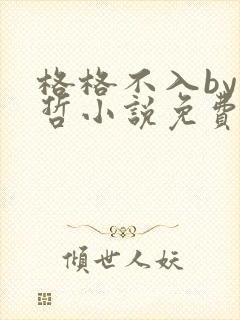 格格不入by
哲小説免費
傾世人妖